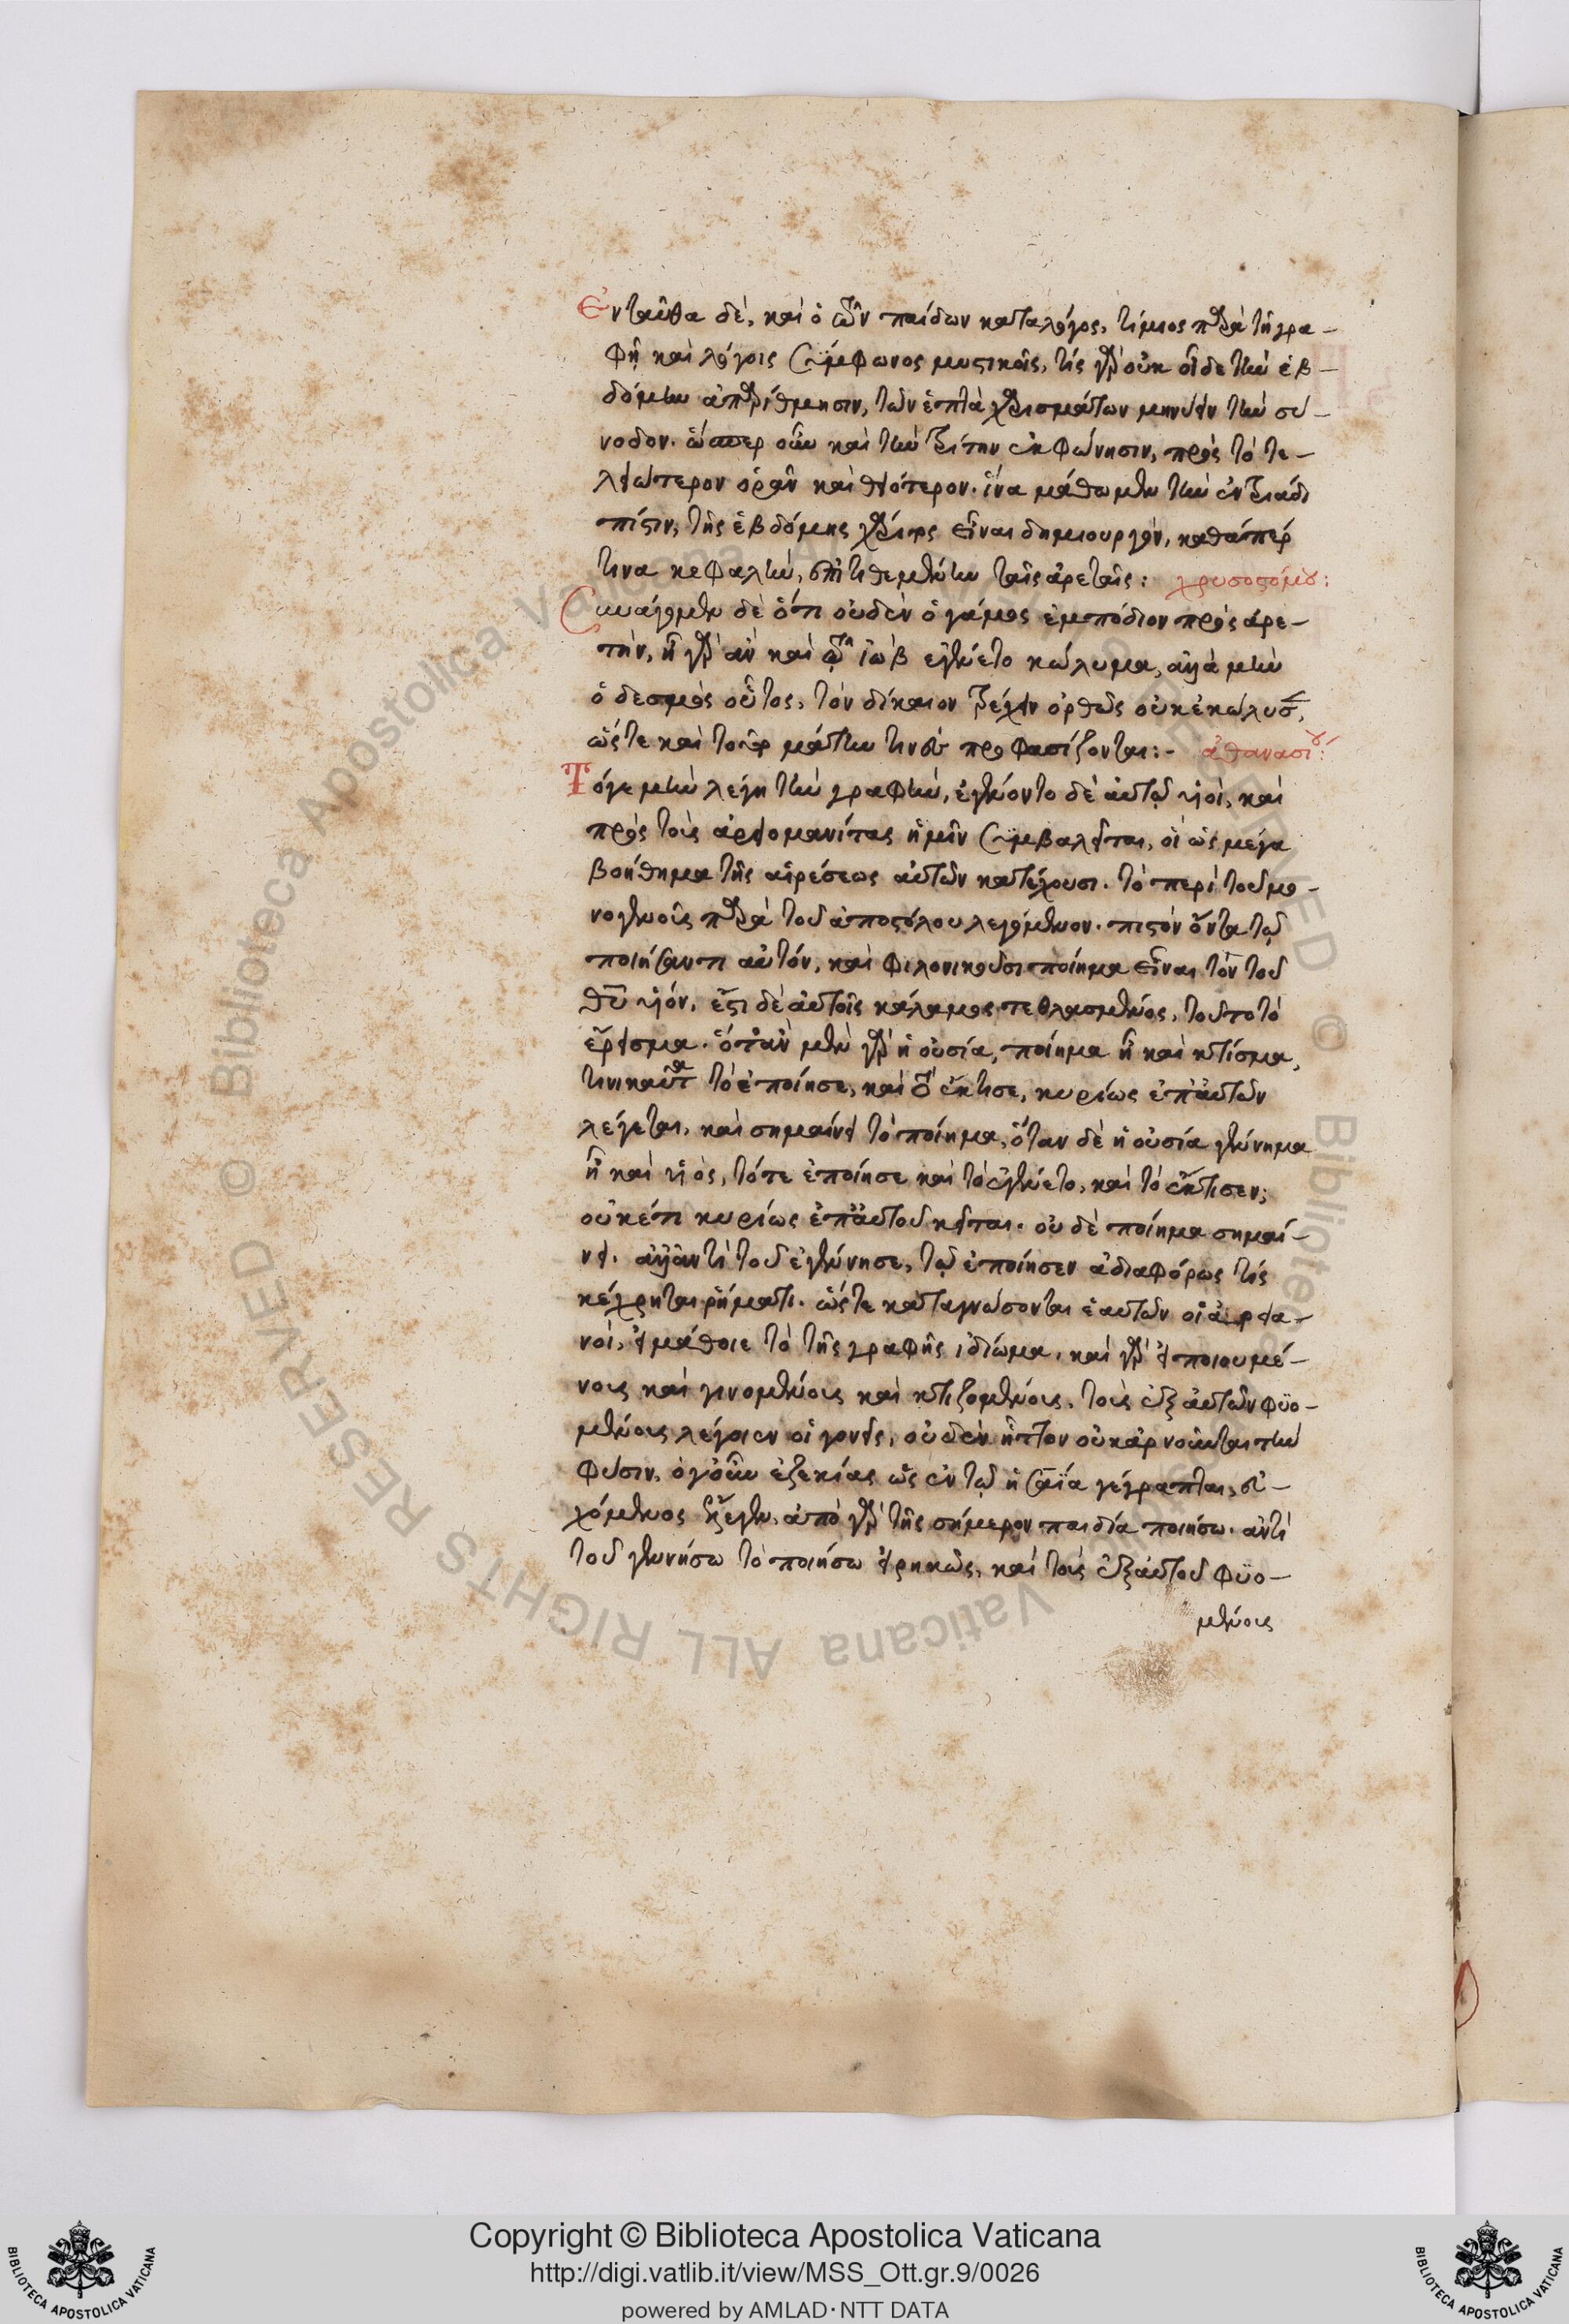 Ἐνταῦθα δὲ, καὶ ὁ τῶν παίδων κατάλογος, τίμιος παρὰ τῇ γρα-
φῇ καὶ λόγοις σύμφωνος μυστικοῖς, τίς γὰρ οὐκ οἶδε τὴν ἑβ-
δόμην ἀπαρίθμησιν, τῶν ἑπτὰ χαρισμάτων μηνύειν τὴν σύ-
νοδον. ὥσπερ οὖν καὶ τὴν τρίτην ἐκφώνησιν, πρὸς τὸ τε-
λειώτερον ὁρᾶν καὶ θειότερον. ἵνα μάθωμεν τὴν ἐν τριάδι
πίστιν, τῆς ἑβδόμης χάριτος εἶναι δημιουργόν, καθάπερ
τινα κεφαλὴν, ἐπιτιθεμένην ταῖς ἀρεταῖς: χρυσοστόμου:
Συνάγομεν δὲ ὅτι οὐδὲν ὁ γάμος ἐμπόδιον πρὸς ἀρε-
τὴν, ἦ γὰρ ἂν καὶ τῷ ἰὼβ ἐγένετο κώλυμα, ἀλλὰ μὴν
ὁ δεσμὸς οὗτος, τὸν δίκαιον τρέχειν ὀρθῶς οὐκ ἐκώλυσε,
ὥστε καὶ τοῦτο μάτην τινὲς προφασίζονται:- ἀθανασίου:
Τό γε μὴν λέγειν τὴν γραφὴν, ἐγένοντο δὲ αὐτῷ υἱοὶ, καὶ
πρὸς τοὺς ἀρειομανίτας ἡμῖν συμβαλεῖται, οἳ ὡς μέγα
βοήθημα τῆς αἱρέσεως αὐτῶν κατέχουσι. τὸ περὶ τοῦ μο-
νογενοῦς παρὰ τοῦ ἀποστόλου λεγόμενον. πιστὸν ὄντα τῷ
ποιήσαντι αὐτόν, καὶ φιλονικοῦσι ποίημα εἶναι τὸν τοῦ
θῦ υἱόν, ἔστι δὲ αὐτοῖς κάλαμος τεθλασμένος, τοῦτο τὸ
ἔρεισμα. ὅταν μὲν γὰρ ἡ οὐσία, ποίημα ᾖ καὶ κτίσμα,
τηνικαῦτα τὸ ἐποίησε, καὶ τὸ ἔκτισε, κυρίως ἐπ' αὐτῶν
λέγεται, καὶ σημαίνει τὸ ποίημα, ὅταν δὲ ἡ οὐσία γέννημα
ᾖ καὶ υἱὸς, τότε ἐποίησε καὶ τὸ ἐγένετο, καὶ τὸ ἔκτισεν,
οὐκέτι κυρίως ἐπ' αὐτοῦ κεῖται. οὐδὲ ποίημα σημαί-
νει. ἀλλ' ἀντὶ τοῦ ἐγέννησε, τῷ ἐποίησεν ἀδιαφόρως τίς
κέχρηται ῥήματι. ὥστε καταγνώσονται ἑαυτῶν οἱ ἀρεια-
νοὶ, εἰ μάθοιε τὸ τῆς γραφῆς ἰδίωμα. καὶ γὰρ εἰ ποιουμέ-
νους καὶ γινομένους καὶ κτιζομένους, τοὺς ἐξ αὐτῶν φϋο-
μένους λέγοιεν οἱ γονεῖς, οὐδὲν ἧττον οὐκ ἀρνοῦνται τὴν
φύσιν, ὁ γοῦν ἐζεκίας ὡς ἐν τῷ ἡσαΐα γέγραπται, εὐ-
χόμενος ἔλεγεν, ἀπὸ γὰρ τῆς σήμερον παιδία ποιήσω. ἀντὶ
τοῦ γεννήσω τὸ ποιήσω εἰρηκὼς, καὶ τοὺς ἐξ αὐτοῦ φϋο-
μένους
© Biblioteca Apostolica Vaticana ALL RIGHTS RESERVED
Copyright © Biblioteca Apostolica Vaticana
http://digi.vatlib.it/view/MSS_Ott.gr.9/0026
powered by AMLAD·NTT DATA
BIBLIOTECA APOSTOLICA VATICANA
BIBLIOTECA APOSTOLICA VATICANA